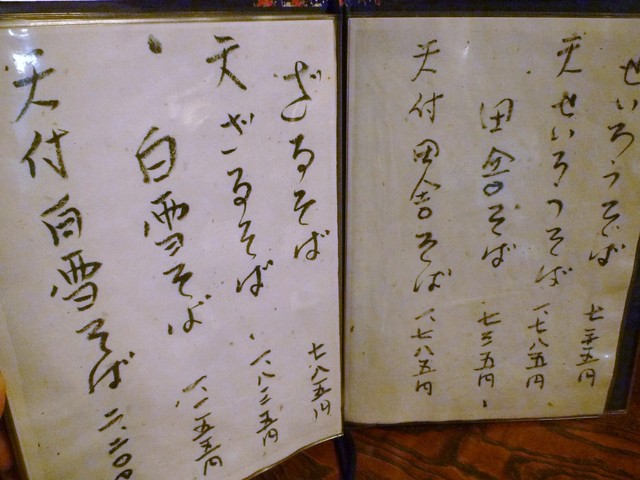 せいろうそば 七三五円
天せいろうそば 一、七八五円
田舎そば 七三五円
天付田舎そば 一、七八五円
ざるそば 七八五円
天ざるそば 一、八三五円
白雪そば 一、一五五円
天付白雪そば 二、二〇